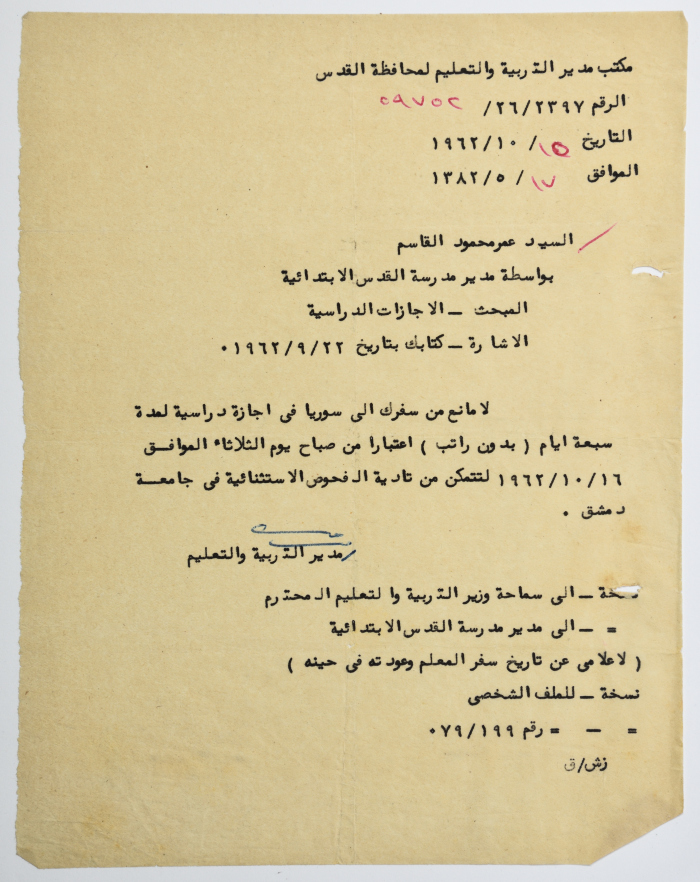 مكتب مدير التربية والتعليم لمحافظة القدس
الرقم ٢٦/٢٣٩٧/ ٥٩٧٥٢
التاريخ ١٥/ ١٩٦٢/١٠
الموافق ١٧/ ١٣٨٢/٥
السيد عمر محمود القاسم
بواسطة مدير مدرسة القدس الابتدائية
المبحث ــ الاجازات الدراسية
الاشارة ــ كتابك بتاريخ ١٩٦٢/٩/٢٢٠
لا مانع من سفرك الى سوريا في اجازة دراسية لمدة
سبعة ايام ( بدون راتب ) اعتبارا من صباح يوم الثلاثاء الموافق
١٩٦٢/١٠/١٦ لتتمكن من تادية الفحوص الاستثنائية في جامعة
دمشق .
/مدير التربية والتعليم
نسخة ــ الى سماحة وزير التربية والتعليم المحترم
= ــ الى مدير مدرسة القدس الابتدائية
( لاعلامي عن تاريخ سفر المعلم وعودته في حينه )
نسخة ــ للملف الشخصي
= ــ = رقم ٠٧٩/١٩٩
زش/ق